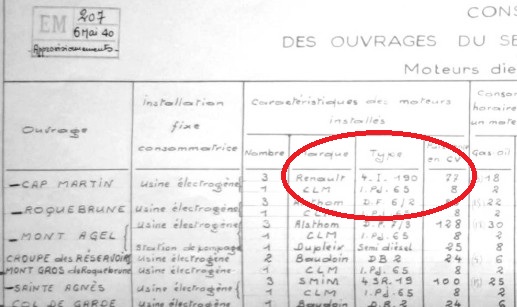 EM
207
6 Mai 40
Approvisionnements
CONS
DES OUVRAGES DU SE
Moteurs die
Ouvrage
Installation fixe consommatrice
Caractéristiques des moteurs installés
Conso horaire un mote
Nombre Marque Type en CV Gas oil
CAP MARTIN usine électrogène 3 Renault 4. I. 190 77 18
1 CLM 1. Pd. 65 8 2
ROQUEBRUNE usine électrogène 3 Alsthom D.F. 6/2 22
1 CLM 1. Pd. 65 8 2
MONT AGEL usine électrogène 3 Alsthom D.F. 7/3 128 30
1 CLM 1. Pd. 65 8 2
Station de pompage 1 Dupleix Semi diésel 25 8
CROUPE des RESERVOIRS usine électrogène 2 Baudoin DB 2 24 6
MONT GROS de Roquebrune usine électrogène 1 CLM 1. Pd. 65 8 2
SAINTE AGNÈS usine électrogène 3 SMIM 4 SR. 19 100 25
1 CLM 1. Pd. 65 8 2
COL DE GARDE usine électrogène 1 Baudoin D.B. 2 24